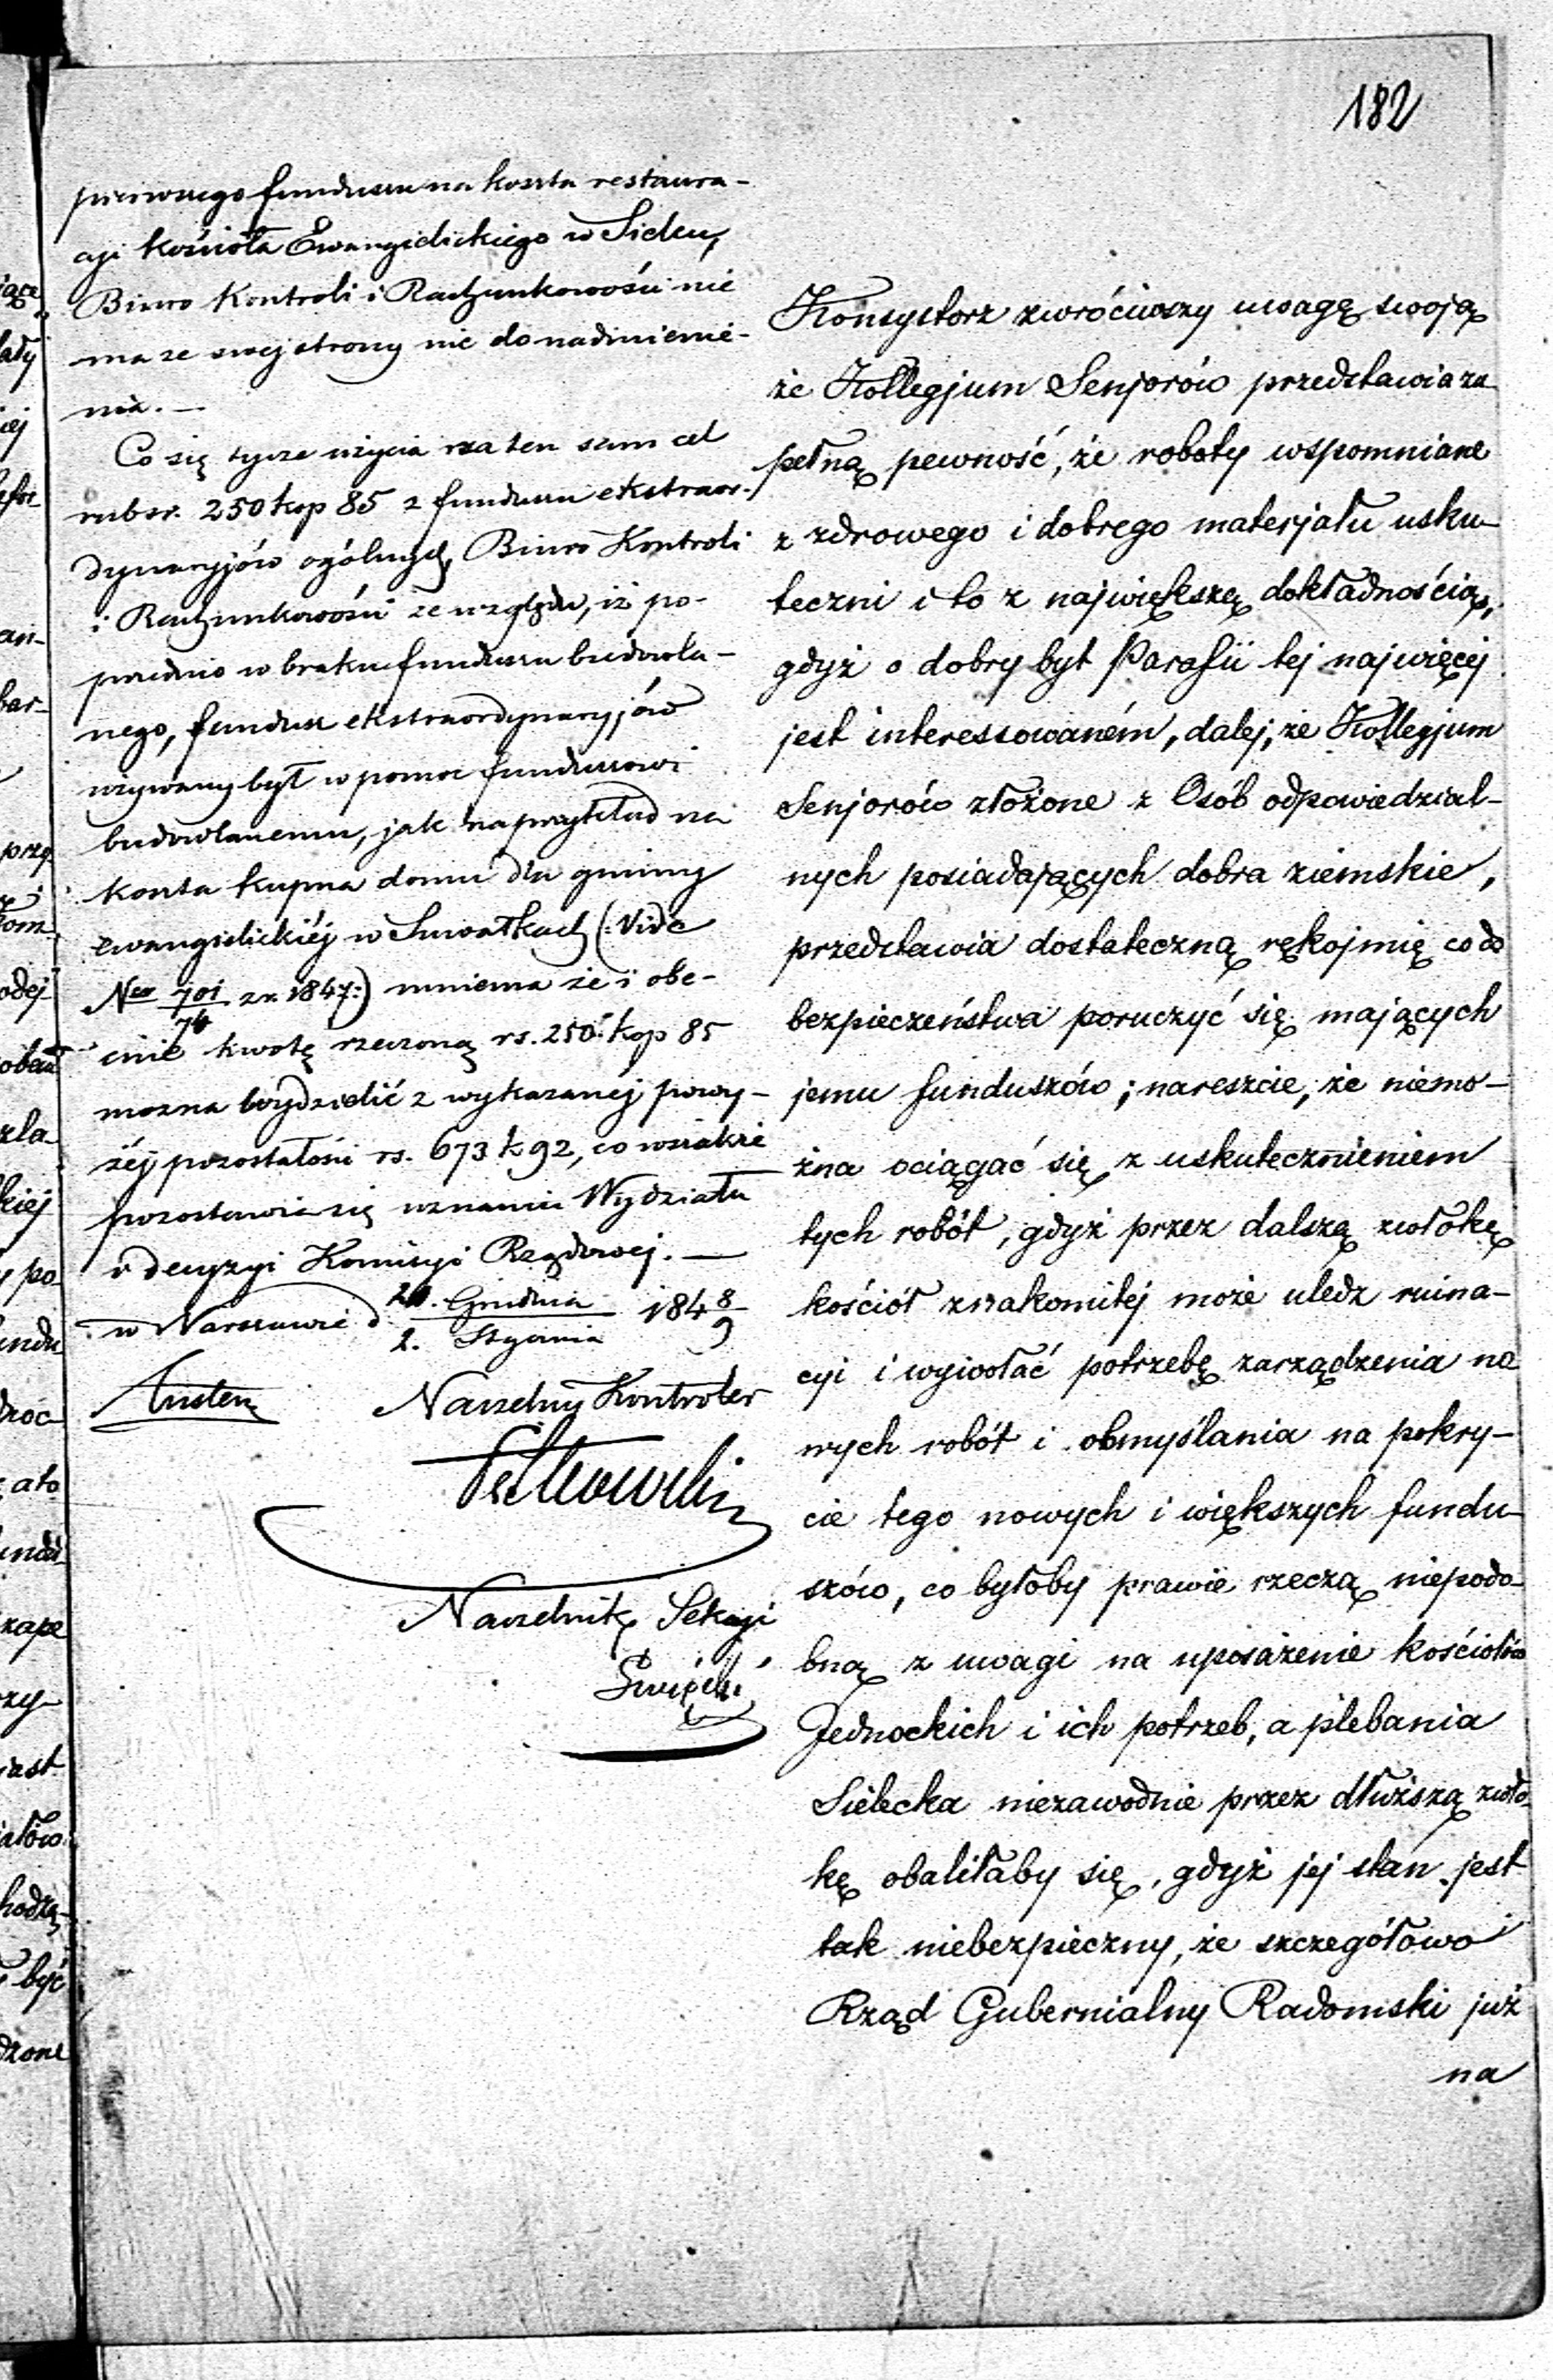 182
pierwszego funduszu na koszta restaura-
cyi kościoła Ewangielickiego w Sielcu,
Biuro Kontroli i Rachunkowości nie
ma ze swej strony nic do nadmienie-
nia. —
Co się tycze użycia na ten sam cel
rubsr. 250 kop 85 z funduszu ekstraor-
dynaryjów ogólnych, Biuro Kontroli
i Rachunkowości ze względu, iż po-
przednio w braku funduszu budowla-
nego, fundusz ekstraordynaryjów
używany był w pomoc funduszowi
budowlanemu, jak naprzykład na
koszta kupna domu dla gminy
ewangielickiéj w Suwałkach (: Vide
Nro 701/76 z r. 1847 :) mniema że i obe-
cnie kwotę rzeczoną rs. 250 kop 85
można wydzielić z wykazanéj powy-
żéj pozostałości rs. 673 k 92, co wszakże
pozostawia się uznaniu Wydziału
i decyzyi Komisyi Rządowej. —
w Warszawie d. Grudnia / 2. Stycznia 1848/9
Naczelny Kontroler
Naczelnik Sekcyi
Konsystorz zwróciwszy uwagę swoją
że Kollegjum Senjorów przedstawia zu
pełną pewność, że roboty wspomniane
z zdrowego i dobrego materjału usku-
teczni i to z największą dokładnością,
gdyż o dobry byt Parafii tej najwięcej
jest interessowaném, dalej, że Kollegjum
Senjorów złożone z Osób odpowiedzial-
nych posiadających dobra ziemskie,
przedstawia dostateczną rękojmię co do
bezpieczeństwa poruczyć się mających
jemu funduszów; nareszcie, że niemo-
żna ociągać się z uskutecznieniem
tych robót, gdyż przez dalszą zwłokę
kościół znakomitej może uledz ruina-
cyi i wywołać potrzebę zarządzenia no
wych robót i obmyślania na pokry-
cie tego nowych i większych fundu-
szów, co byłoby prawie rzeczą niepodo-
bną z uwagi na uposażenie kościołów
Jednockich i ich potrzeb, a plebania
Sielecka niezawodnie przez dłuższą zwło-
kę obaliłaby się, gdyż jej stan jest
tak niebezpieczny, że szczegółowo
Rząd Gubernialny Radomski już
na